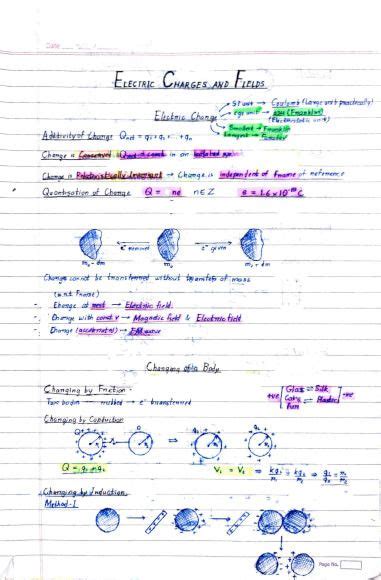 Date
ELECTRIC CHARGES AND FIELDS
Electric Charge → SI unit → Coulomb (Large unit practically)
→ cgs unit → esu (Franklin)
(Electrostatic unit)
Smallest → Franklin
Largest → Faraday
Additivity of Charge Qnet = q₁ + q₂ + ... + qn
Charge is Conserved Qnet = const in an isolated system
Charge is Relativistically Invariant → Charge is independent of frame of reference
Quantisation of Charge Q = ne n∈Z e = 1.6 × 10⁻¹⁹ C
e⁻ removed e⁻ given
m₀ - dm m₀ m₀ + dm
Charge cannot be transferred without transfer of mass
(w.r.t. frame)
- Charge at rest → Electric field.
- Charge with const v → Magnetic field & Electric field
- Charge (accelerated) → EM wave
Charging of a Body.
Charging by Friction -
Two bodies rubbed → e⁻ transferred
+ve Glass ⇌ Silk -ve
Fur ⇌ Plastic
Charging by Conduction
Q r₁ r₂ ⇒ q₁ r₁ q₂ r₂
Q = q₁ + q₂ V₁ = V₂ ⇒ kq₁/r₁ = kq₂/r₂ ⇒ q₁/q₂ = r₁/r₂
Charging by Induction.
Method-I
Page No.